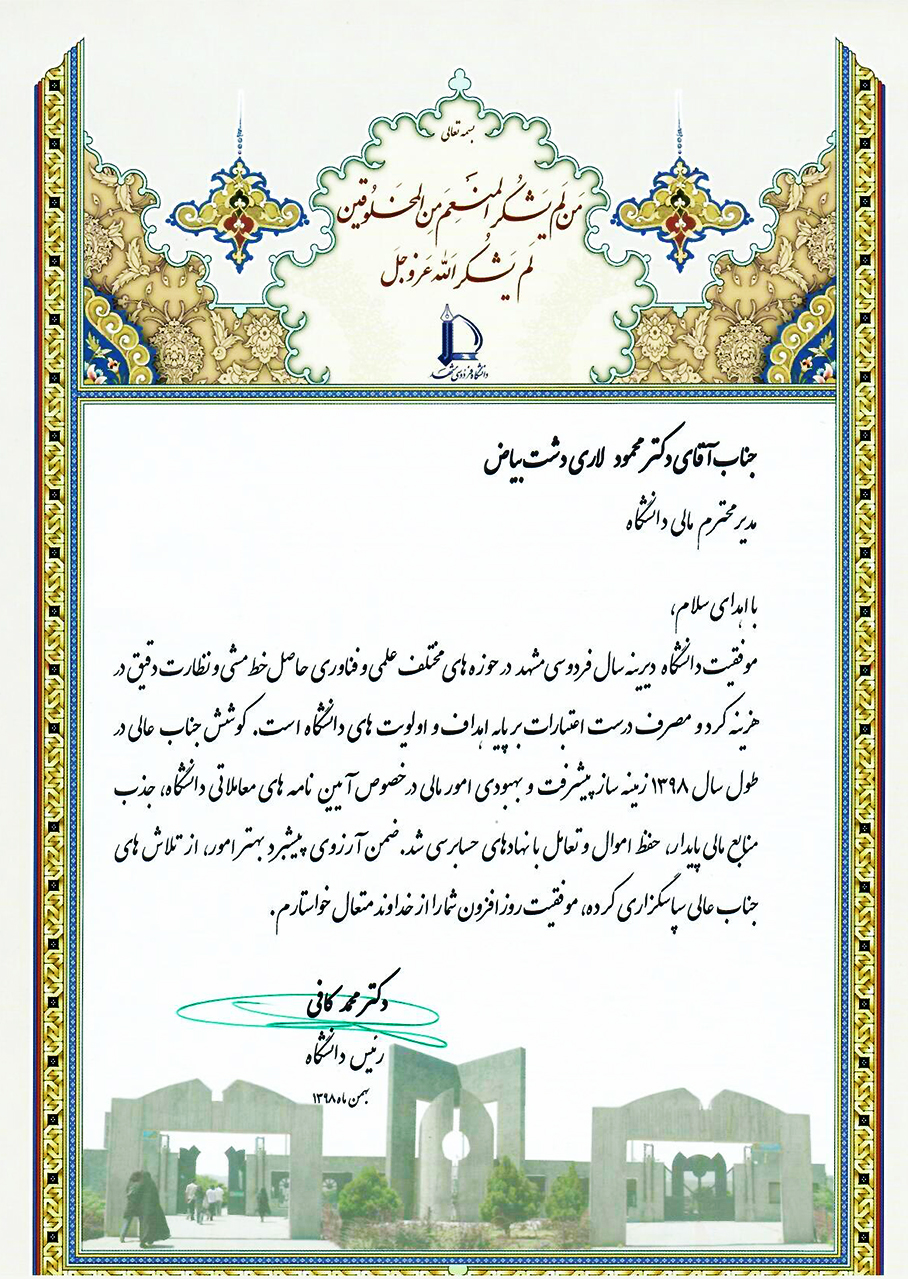 بسمه تعالی
مَن لَم یَشکُرِ المُنعِمَ مِنَ المَخلُوقین
لَم یَشکُرِ اللهَ عَزوَجلَ
دانشگاه فردوسی مشهد
جناب آقای دکتر محمود لاری دشت بیاض
مدیر محترم مالی دانشگاه
با اهدای سلام،
موفقیت دانشگاه دیرینه سال فردوسی مشهد در حوزه های مختلف علمی و فناوری حاصل خط مشی و نظارت دقیق در
هزینه کرد و مصرف درست اعتبارات بر پایه اهداف و اولویت های دانشگاه است. کوشش جناب عالی در
طول سال ۱۳۹۸ زمینه ساز پیشرفت و بهبودی امور مالی در خصوص آیین نامه های معاملاتی دانشگاه، جذب
منابع مالی پایدار، حفظ اموال و تعامل با نهادهای حسابرسی شد. ضمن آرزوی پیشبرد بهتر امور، از تلاش های
جناب عالی سپاسگزاری کرده، موفقیت روز افزون شما را از خداوند متعال خواستارم.
دکتر محمد کافی
رئیس دانشگاه
بهمن ماه ۱۳۹۸